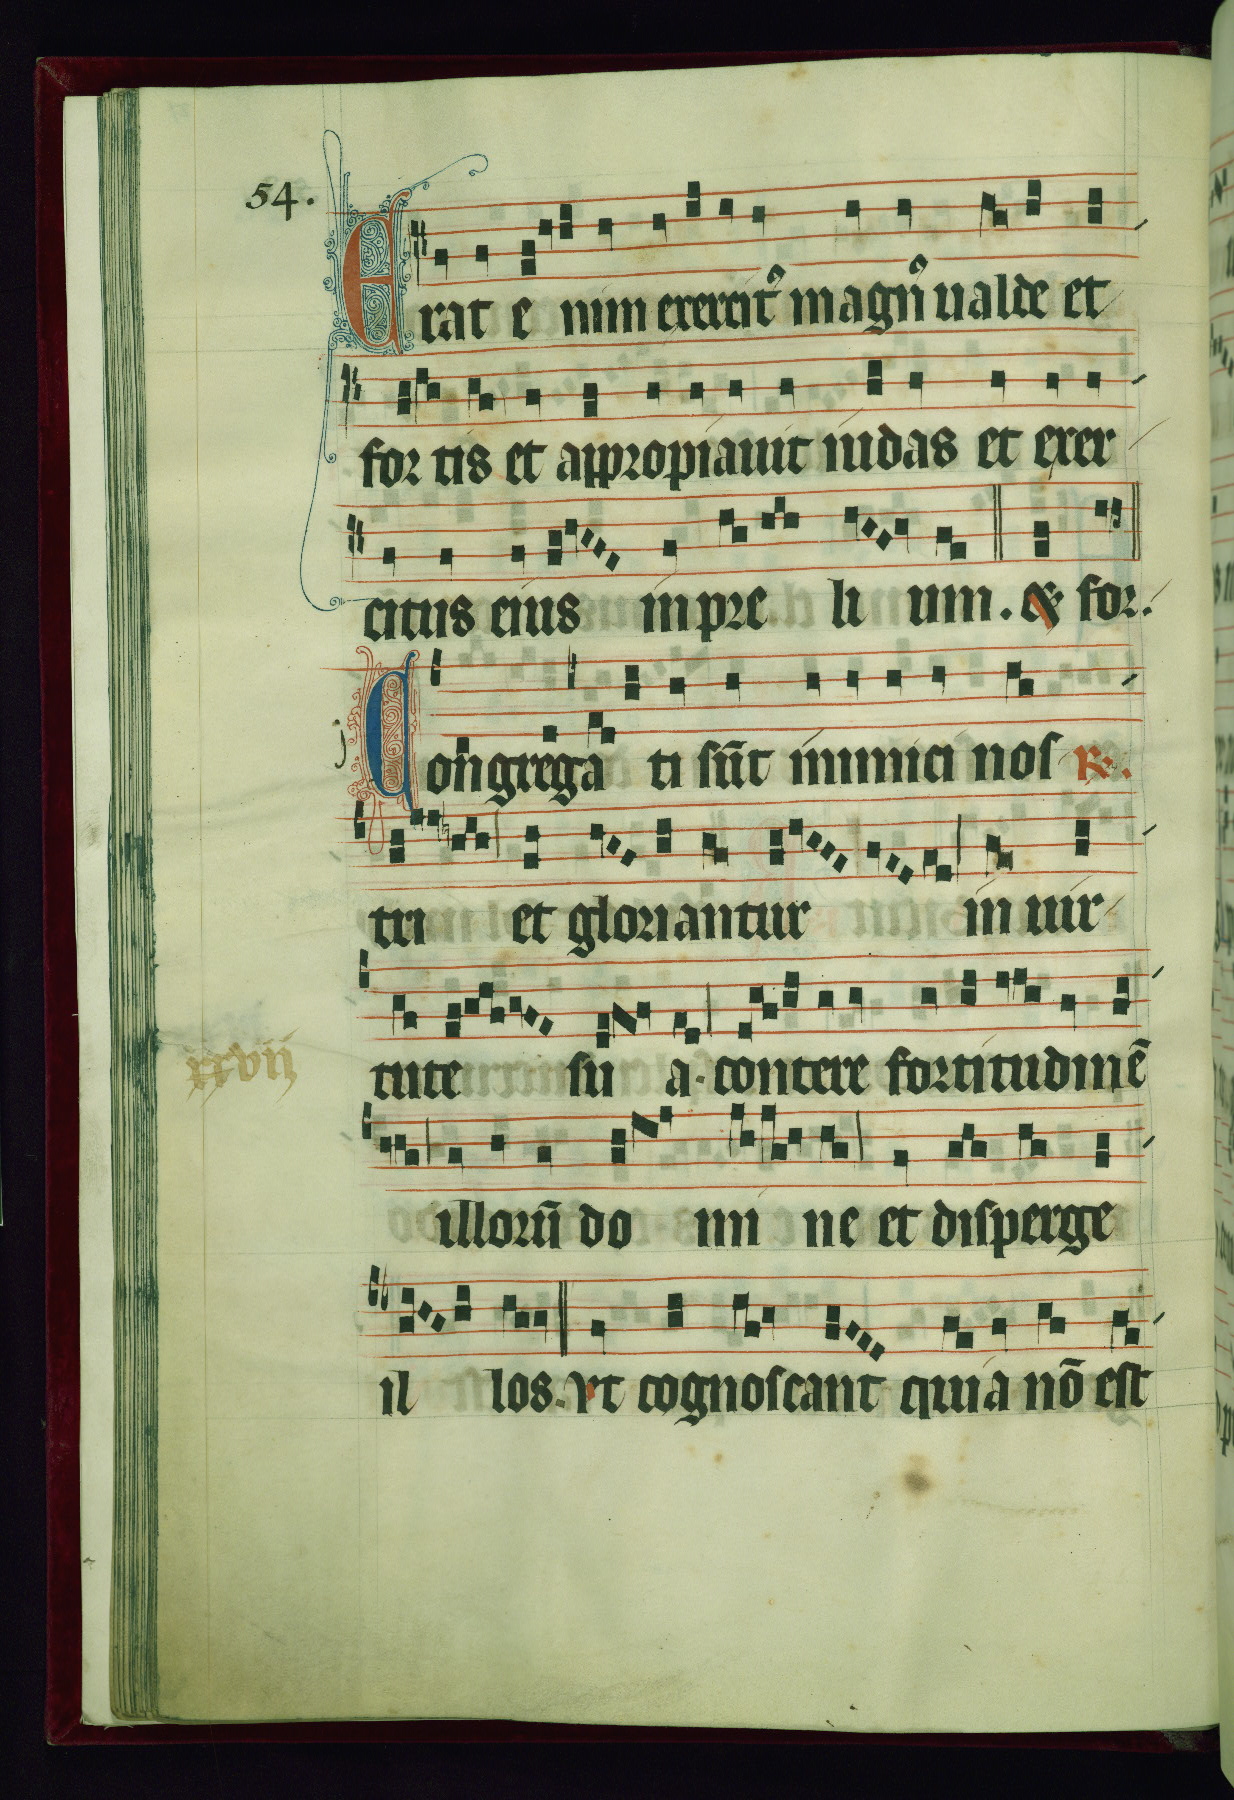 54.
Erat e nim exercit᾽ magn᾽ ualde et
for tis et appropiauit iudas et exer
citus eius in pre li um. & for.
Congrega ti sūt inimici nos ℟.
tri et gloriantur in uir
tute su a. contere fortitudinē
xxvij
illorū do mi ne et disperge
il los. vt cognoscant quia nō est